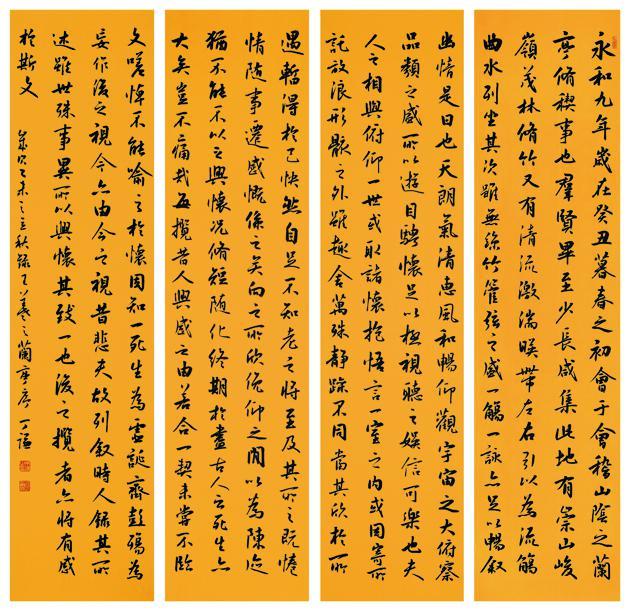 永和九年歲在癸丑暮春之初會于會稽山陰之蘭
亭脩禊事也羣賢畢至少長咸集此地有崇山峻
嶺茂林脩竹又有清流激湍暎帶左右引以為流觴
曲水列坐其次雖無絲竹管弦之盛一觴一詠亦足以暢敘
幽情是日也天朗氣清惠風和暢仰觀宇宙之大俯察
品類之盛所以遊目騁懷足以極視聽之娛信可樂也夫
人之相與俯仰一世或取諸懷抱悟言一室之內或因寄所
託放浪形骸之外雖趣舍萬殊靜躁不同當其欣於所
遇暫得於己快然自足不知老之將至及其所之既惓
情隨事遷感慨係之矣向之所欣俛仰之間以為陳迹
猶不能不以之興懷況脩短隨化終期於盡古人云死生亦
大矣豈不痛哉每攬昔人興感之由若合一契未嘗不臨
文嗟悼不能喻之於懷固知一死生為虛誕齊彭殤為
妄作後之視今亦由今之視昔悲夫故列敘時人錄其所
述雖世殊事異所以興懷其致一也後之攬者亦將有感
於斯文
歲次乙未之立秋錄王羲之蘭亭序